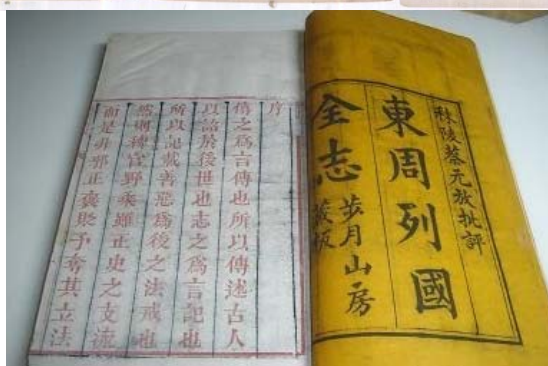 秣陵蔡元放批評
東周列國
全志
步月山房
藏板
序
之爲言傳也所以傳述古人
以於後世也志之爲言記也
所以記載善惡爲後之法戒也
然則稗官野乘雖正史之支流
而是非邪正褒貶予奪其立法